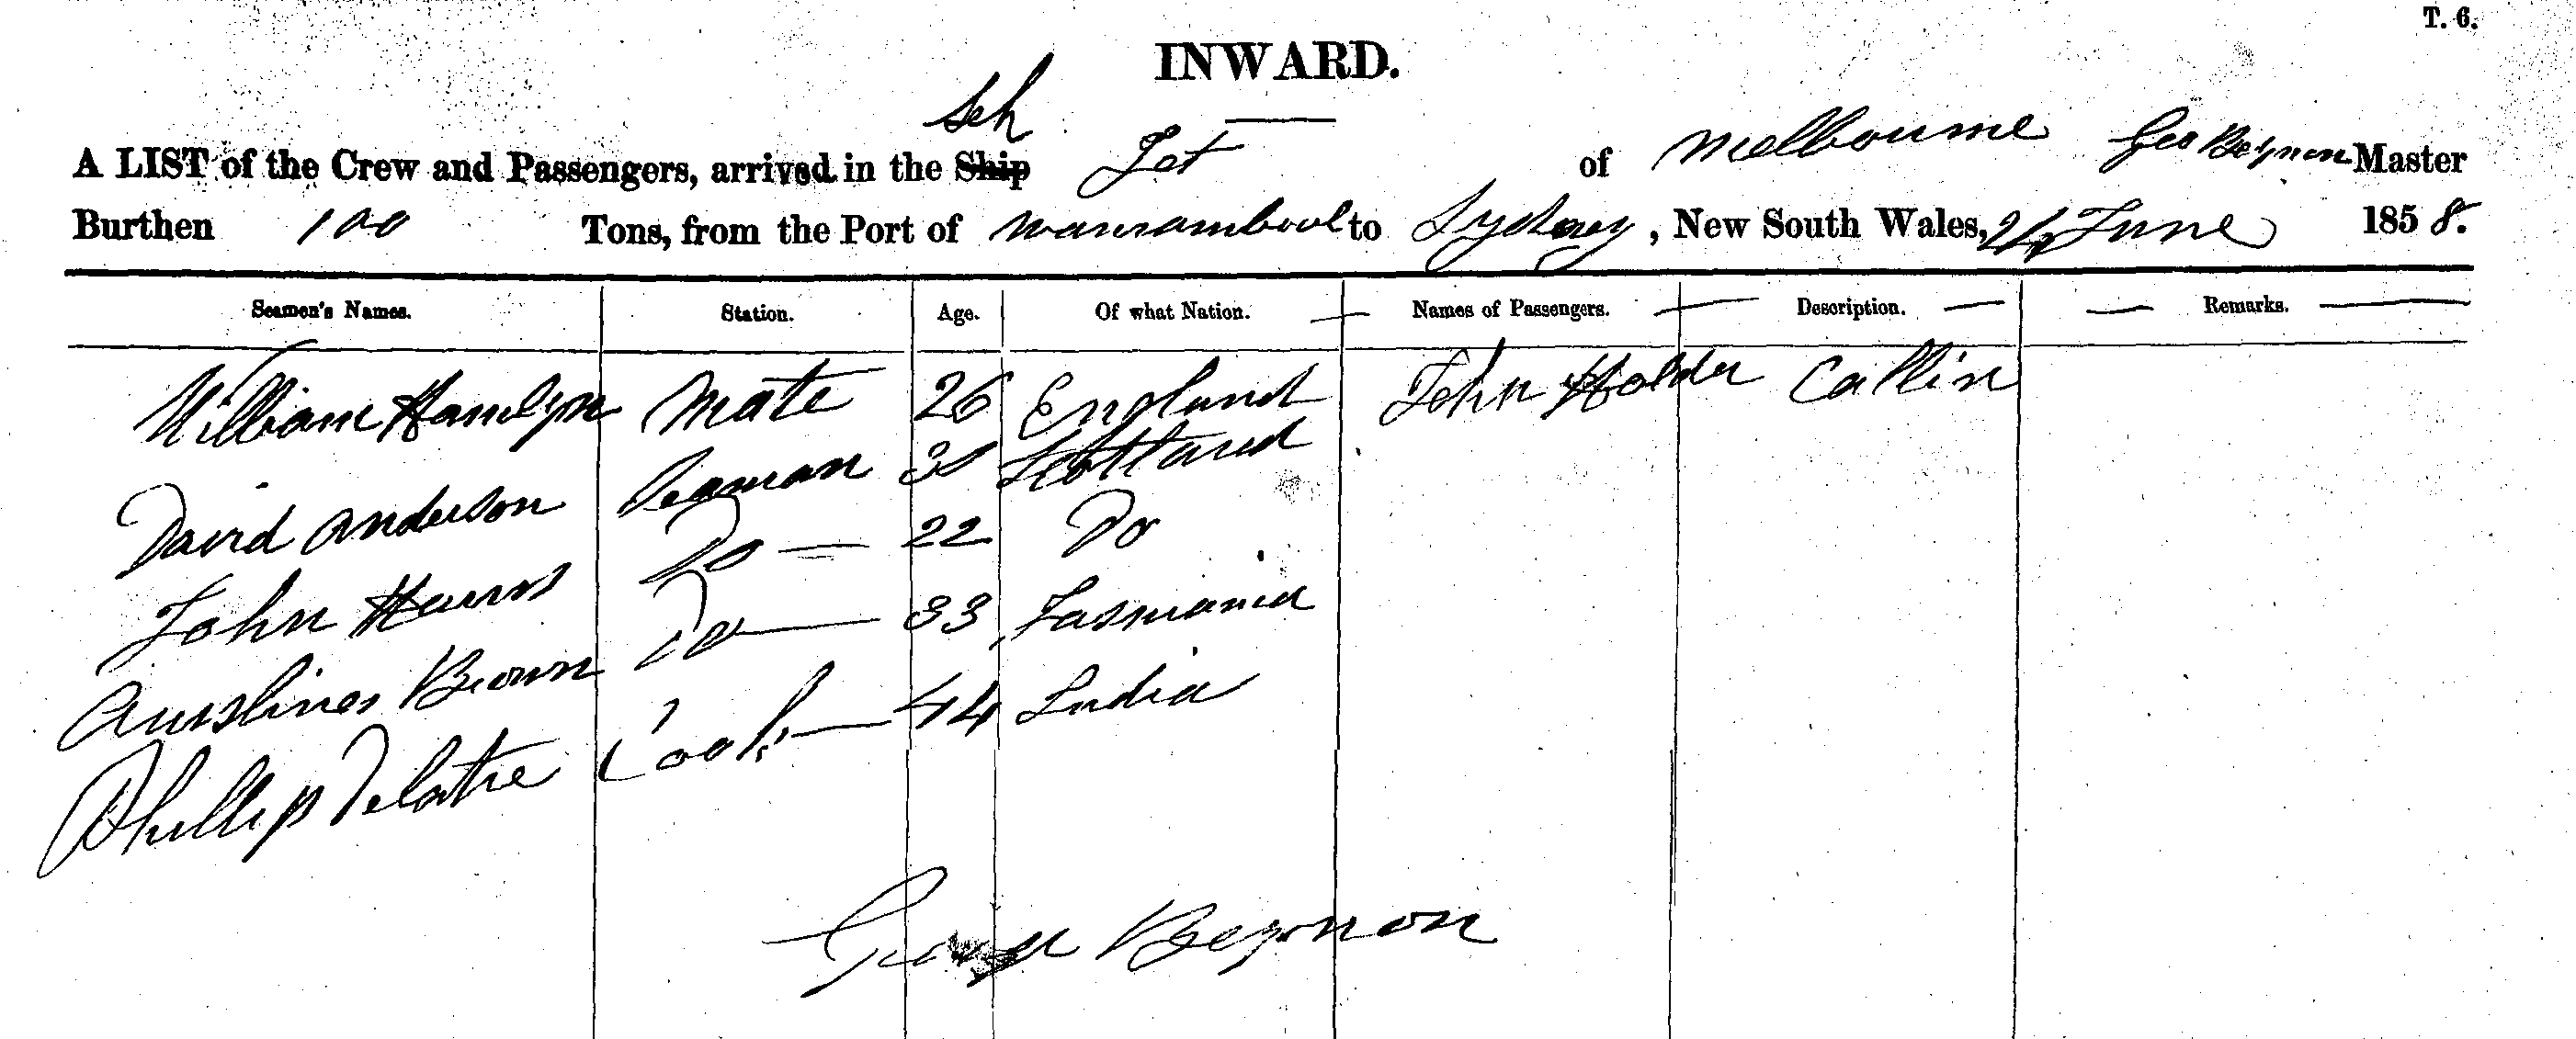 T. 6.
INWARD.
Sch
A LIST of the Crew and Passengers, arrived in the Ship Jet of Melbourne Geo Beynon Master
Burthen 100 Tons, from the Port of Warrnambool to Sydney, New South Wales, 24 June 1858.
Seamen's Names. Station. Age. Of what Nation. Names of Passengers. Description. Remarks.
William Hamlyn Mate 26 England John Holder Callin
David Anderson Seaman Scotland
John Do 22 Do
Brown Do 33 Tasmania
Phillip Delatre Cook 44 India
George Beynon